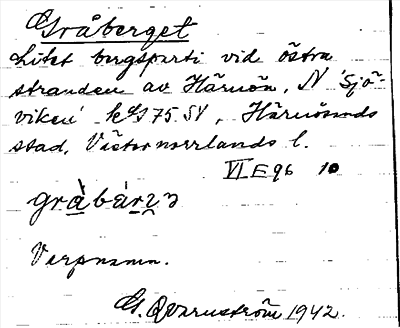 Gråberget
Litet bergsparti vid östra
stranden av Härnön, N 'Sjö-
viken' k^bl 75 SV, Härnösands
stad, Västernorrlands l.
VI E 96 10
Verpnamn.
G. Qvarnström 1942.